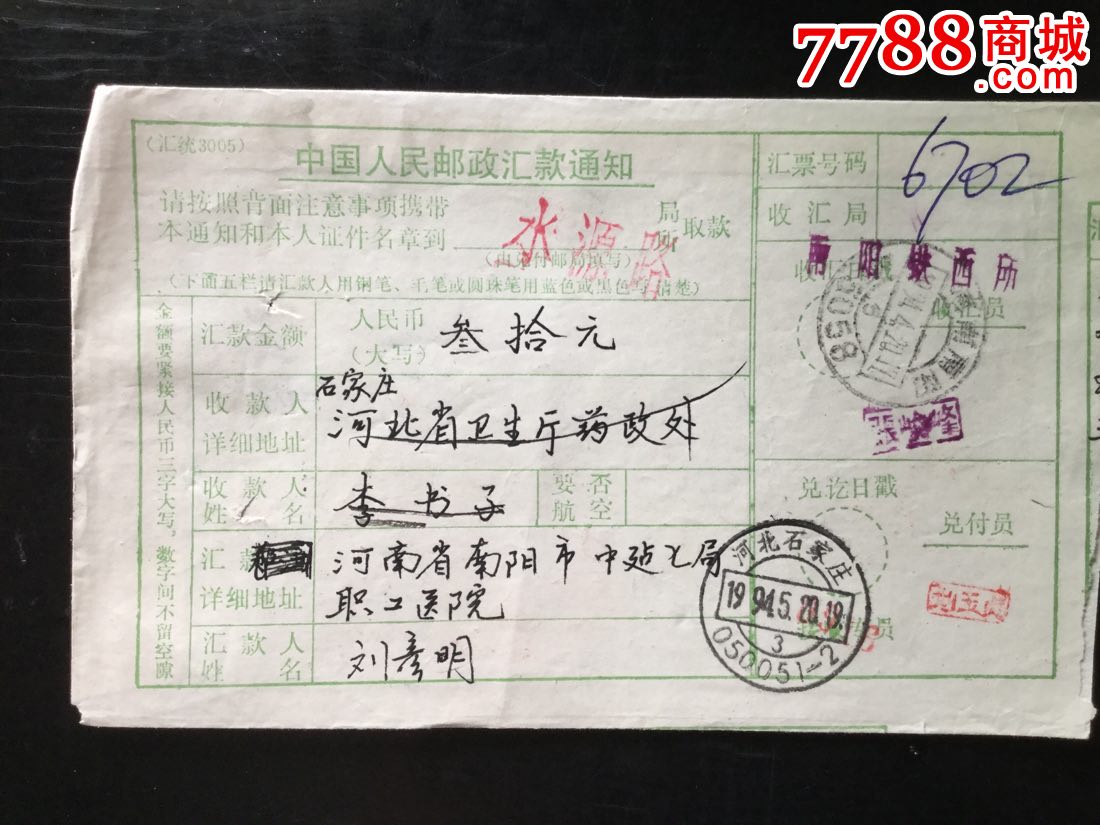 7788商城
.com
(汇统3005)
中国人民邮政汇款通知
请按照背面注意事项携带
本通知和本人证件名章到 水源路 局所取款
(由兑付邮局填写)
(下面五栏请汇款人用钢笔、毛笔或圆珠笔用蓝色或黑色写清楚)
金额要紧接人民币三字大写,数字间不留空隙
汇款金额 人民币(大写) 叁拾元
收款人详细地址 石家庄
河北省卫生厅药政处
收款人姓名 李书子 要否航空
汇款 详细地址 河南省南阳市中 局
职工医院
汇款人姓名 刘彦明
汇票号码 6702
收汇局
南阳铁西所
收汇日戳
收汇员
兑讫日戳
兑付员
河北石家庄
1994.5.20.19
3
050051-2